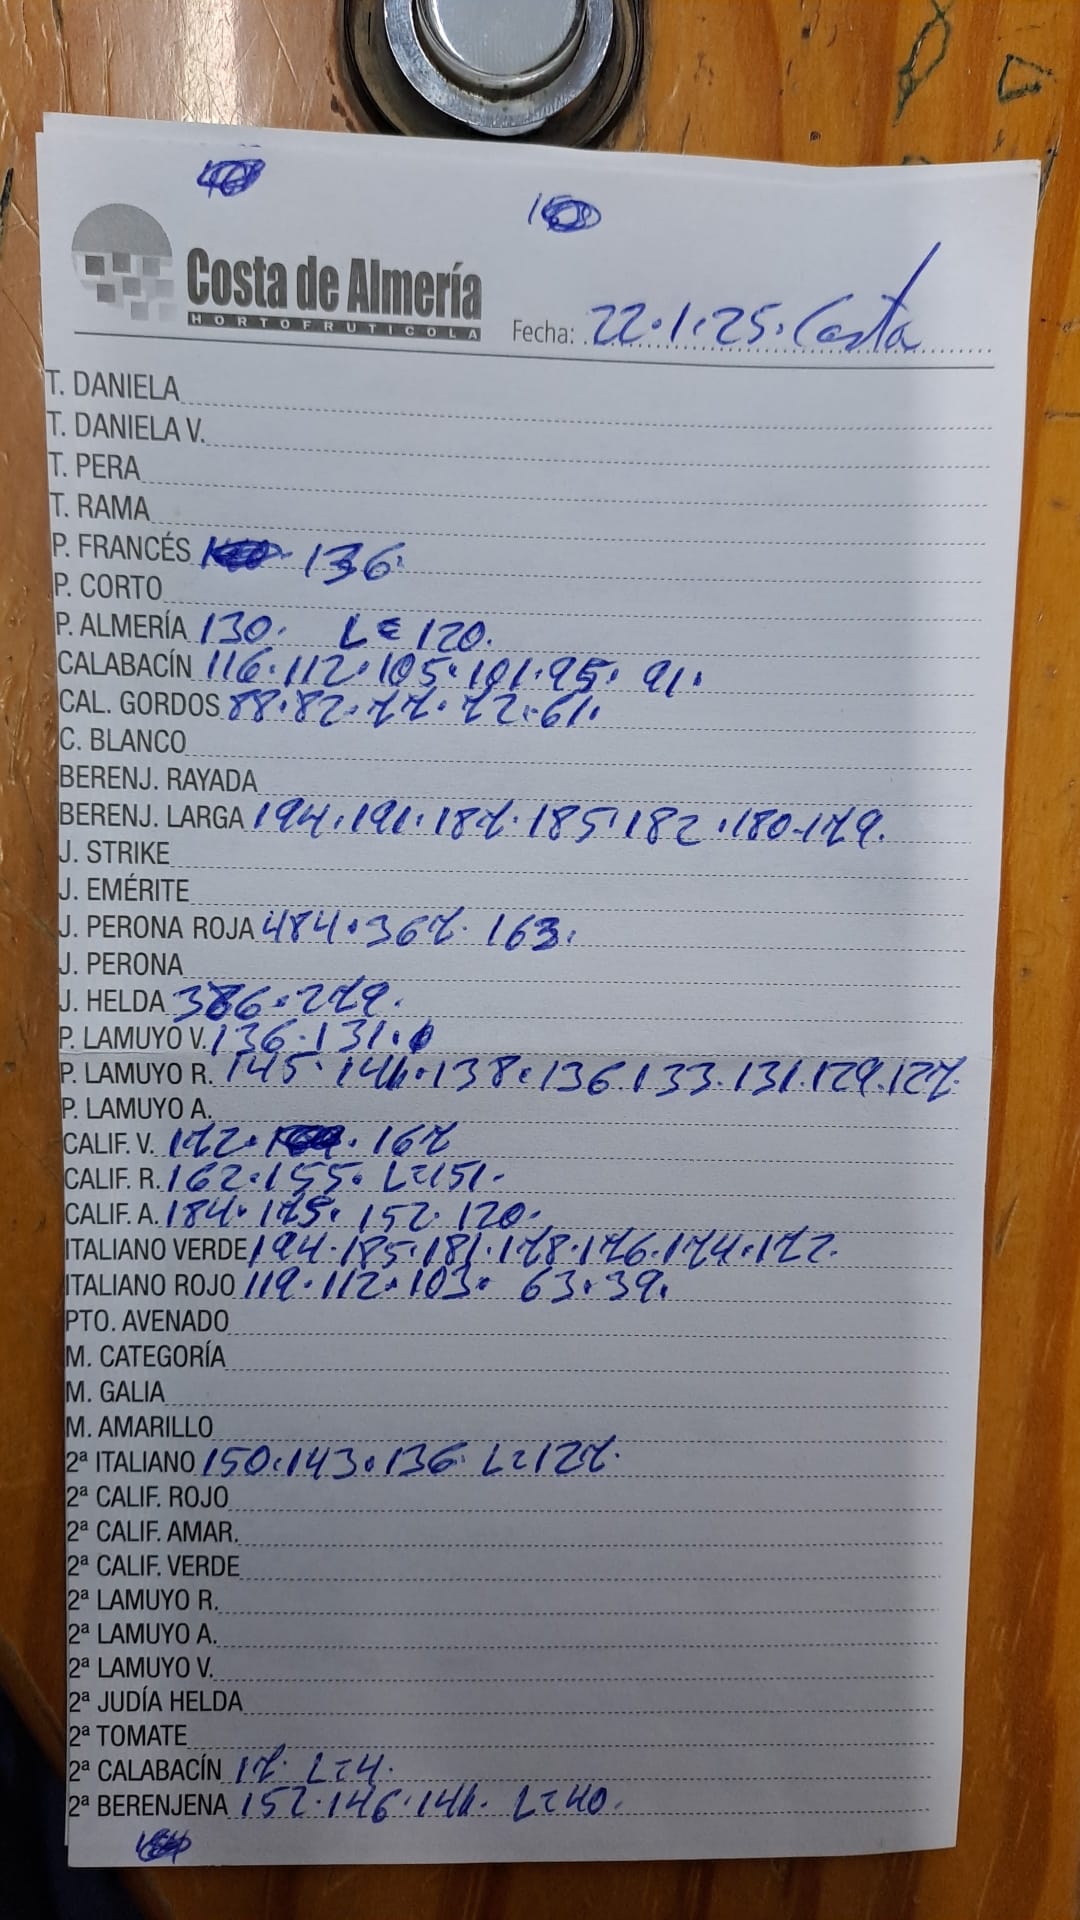 Costa de Almería
HORTOFRUTICOLA
Fecha: 22.1.25. Costa
T. DANIELA
T. DANIELA V.
T. PERA
T. RAMA
P. FRANCÉS 136.
P. CORTO
P. ALMERÍA 130. L=120.
CALABACÍN 116.112.105.101.95.91.
CAL. GORDOS 88.82.77.72.61.
C. BLANCO
BERENJ. RAYADA
BERENJ. LARGA 194.191.187.185.182.180.179.
J. STRIKE
J. EMÉRITE
J. PERONA ROJA 484.367. 163.
J. PERONA
J. HELDA 386.279.
P. LAMUYO V. 136.131.
P. LAMUYO R. 145.141.138.136.133.131.129.127.
P. LAMUYO A.
CALIF. V. 172. 167
CALIF. R. 162.155. L=151.
CALIF. A. 184.175.152.120.
ITALIANO VERDE 194.185.181.178.176.174.172.
ITALIANO ROJO 119.112.103. 63.39.
PTO. AVENADO
M. CATEGORÍA
M. GALIA
M. AMARILLO
2ª ITALIANO 150.143.136. L=127.
2ª CALIF. ROJO
2ª CALIF. AMAR.
2ª CALIF. VERDE
2ª LAMUYO R.
2ª LAMUYO A.
2ª LAMUYO V.
2ª JUDÍA HELDA
2ª TOMATE
2ª CALABACÍN 17. L=4.
2ª BERENJENA 152.146.141. L=40.